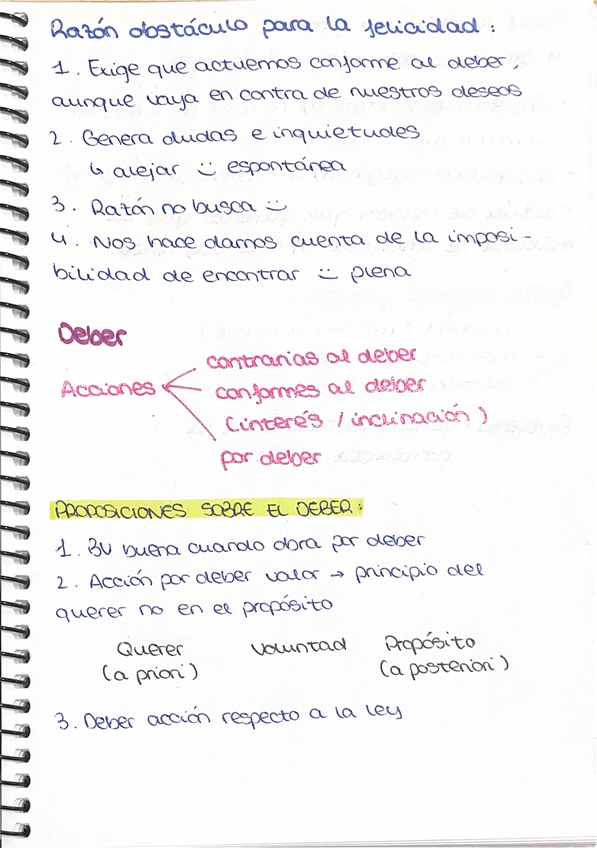 Razón obstáculo para la felicidad:
1. Exige que actuemos conforme al deber,
aunque vaya en contra de nuestros deseos
2. Genera dudas e inquietudes
↳ alejar :) espontánea
3. Razón no busca :)
4. Nos hace darnos cuenta de la imposi-
bilidad de encontrar :) plena
Deber
contrarias al deber
Acciones conformes al deber
(interés / inclinación)
por deber
PROPOSICIONES SOBRE EL DEBER:
1. BV buena cuando obra por deber
2. Acción por deber valor → principio del
querer no en el propósito
Querer Voluntad Propósito
(a priori) (a posteriori)
3. Deber acción respecto a la ley